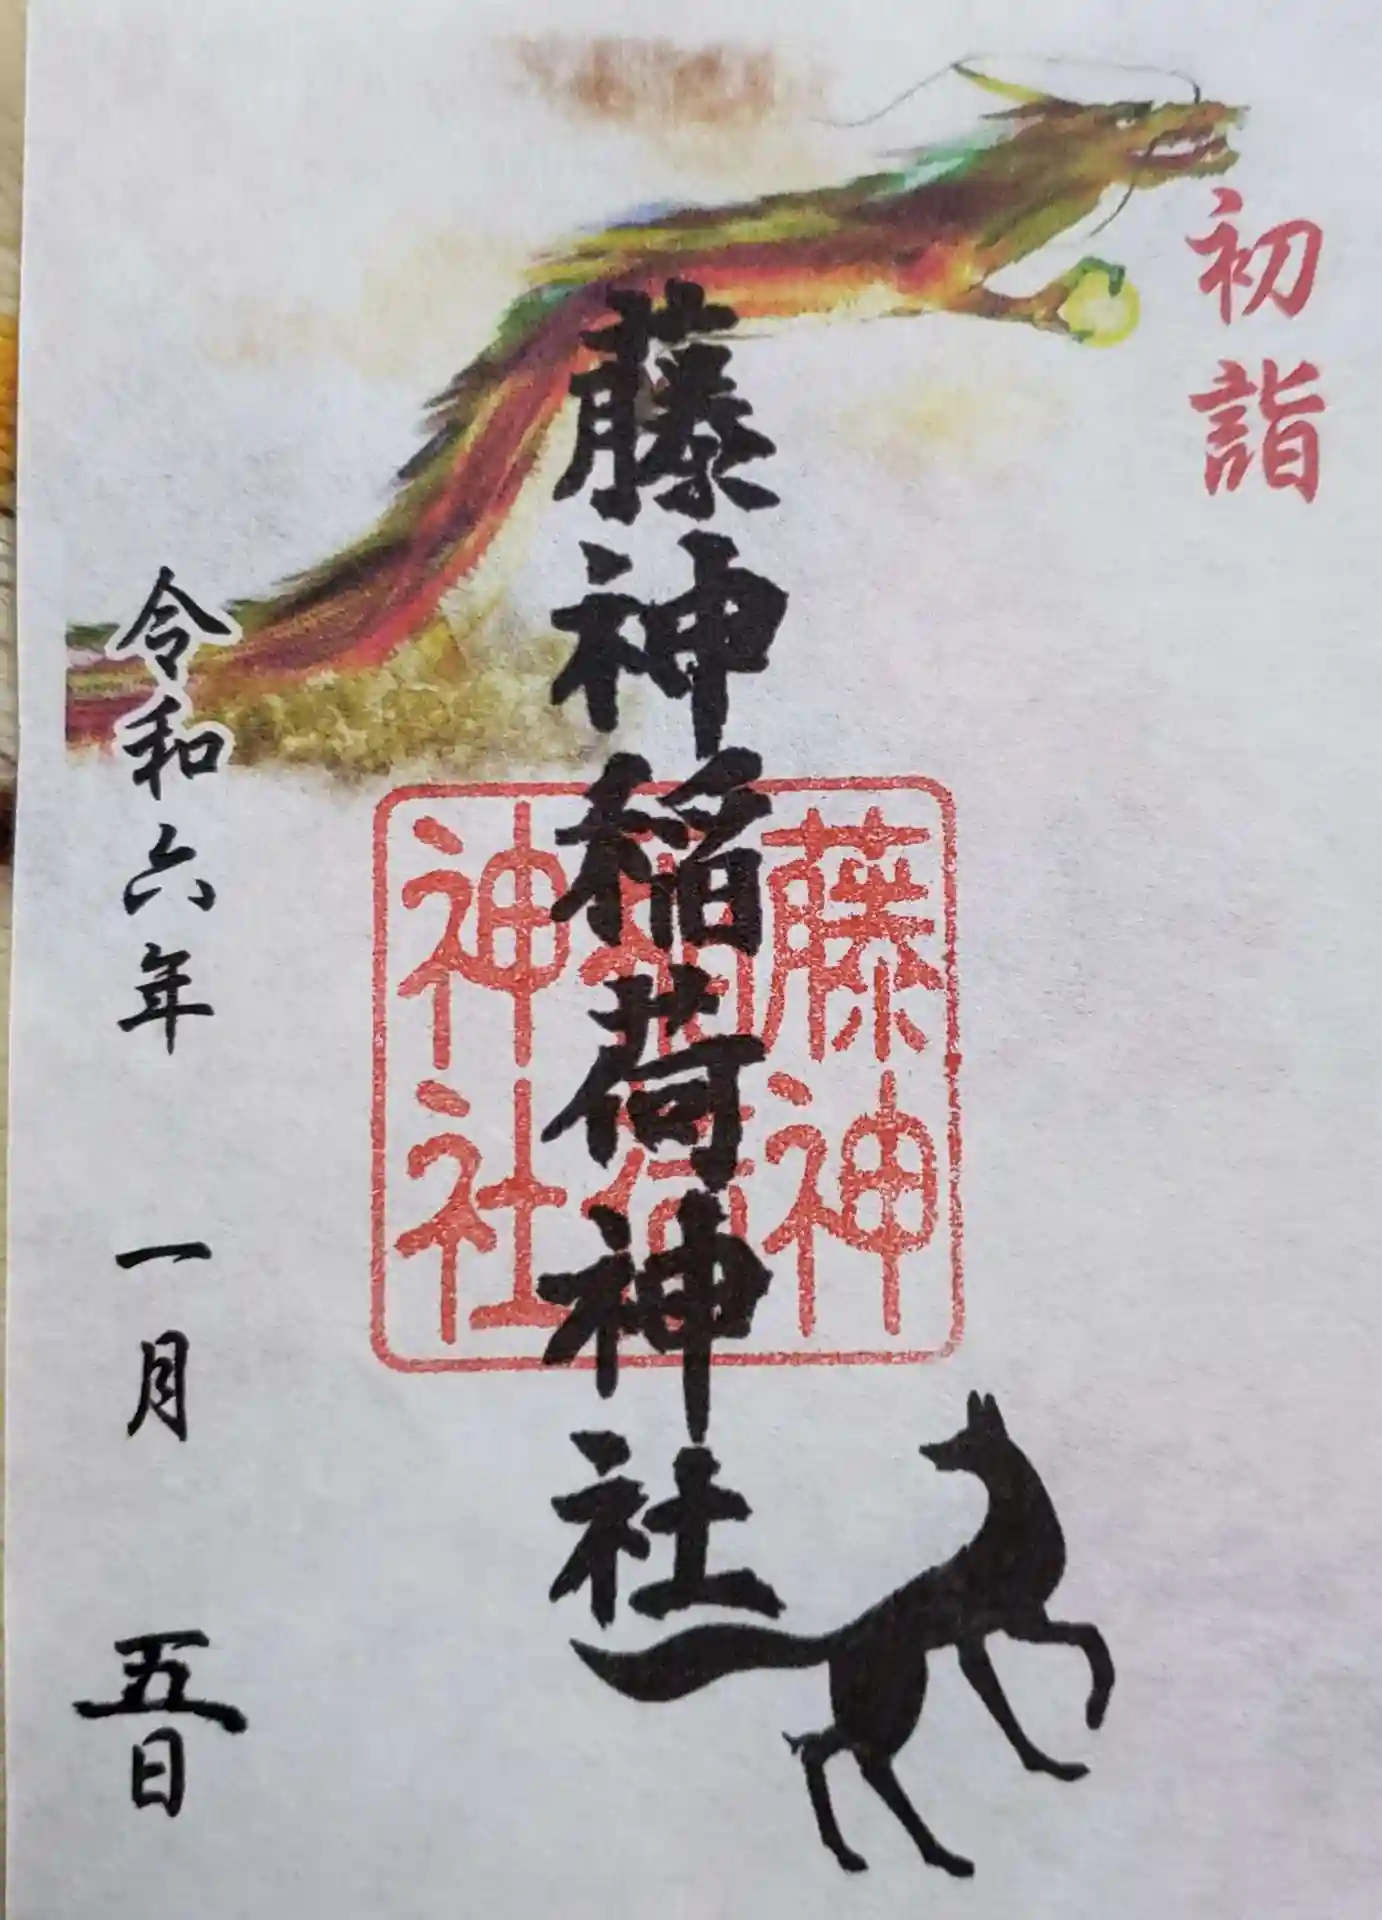 初詣
藤神稲荷神社
藤神
稲荷
神社
令和六年 一月 五日